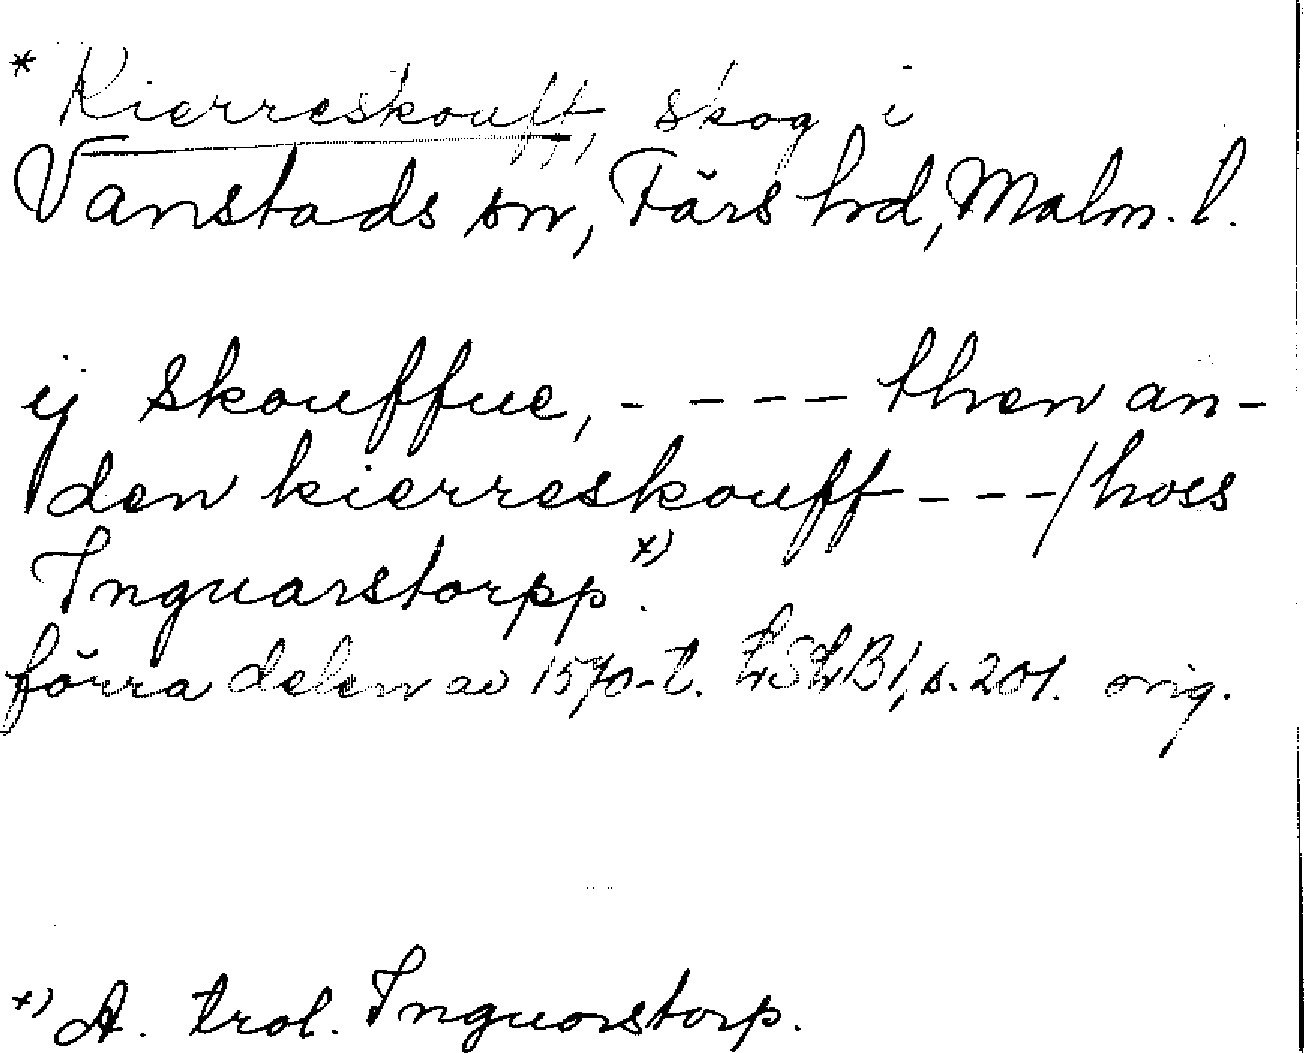 * Kierreskouff, skog i
Vanstads sn, Färs hd, Malm. l.
ij skouffue, - - - - then an-
den kierreskouff - - - / hoss
Inguarstorpp. x)
förra delen av 1570-t. LSLB1, s. 201. orig.
x) A. trol. Inguorstorp.